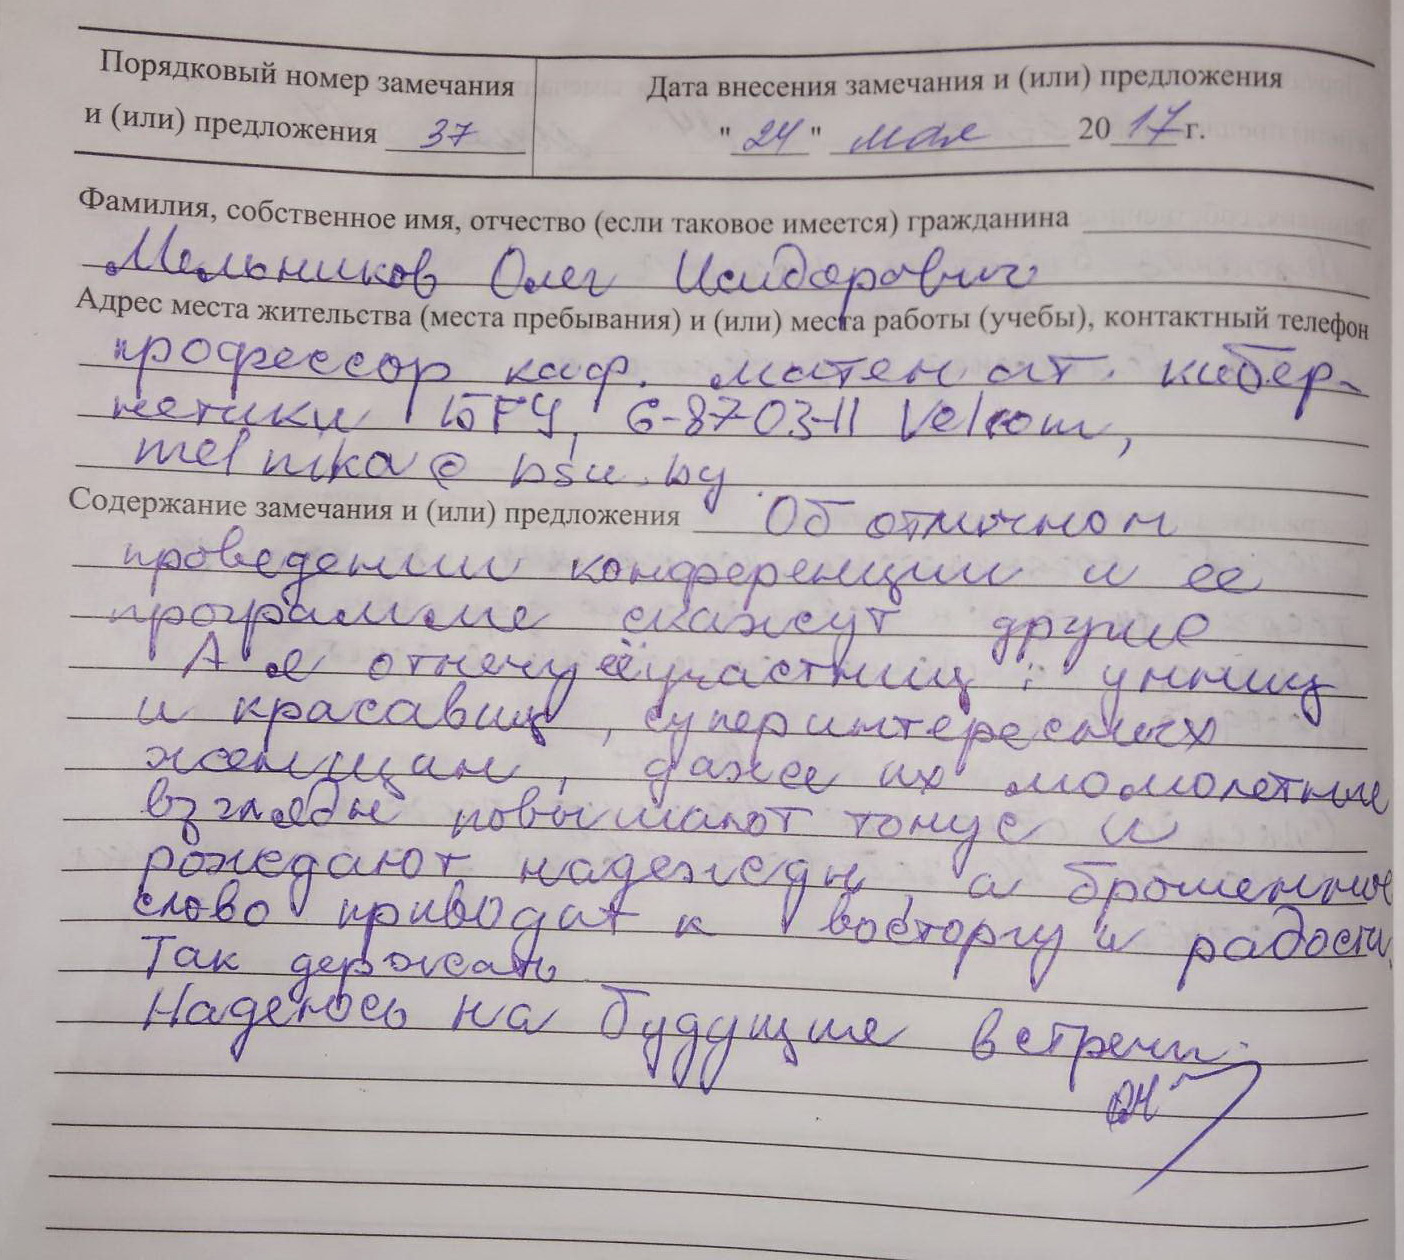 Порядковый номер замечания
и (или) предложения 37
Дата внесения замечания и (или) предложения
"24" мая 2017 г.
Фамилия, собственное имя, отчество (если таковое имеется) гражданина
Мельников Олег Исидорович
Адрес места жительства (места пребывания) и (или) места работы (учебы), контактный телефон
профессор каф. математ. кибер-
нетики БГУ, 6-8703-11 Velcom,
melnika@bsu.by
Содержание замечания и (или) предложения Об отличном
проведении конференции и ее
программе скажут другие
А я отмечу её участниц: умниц
и красавиц, суперинтересных
женщин, даже их момолетные
взгляды повышают тонус и
рождают надежды, а брошенное
слово приводят к восторгу и радости.
Так держать
Надеюсь на будущие встречи.